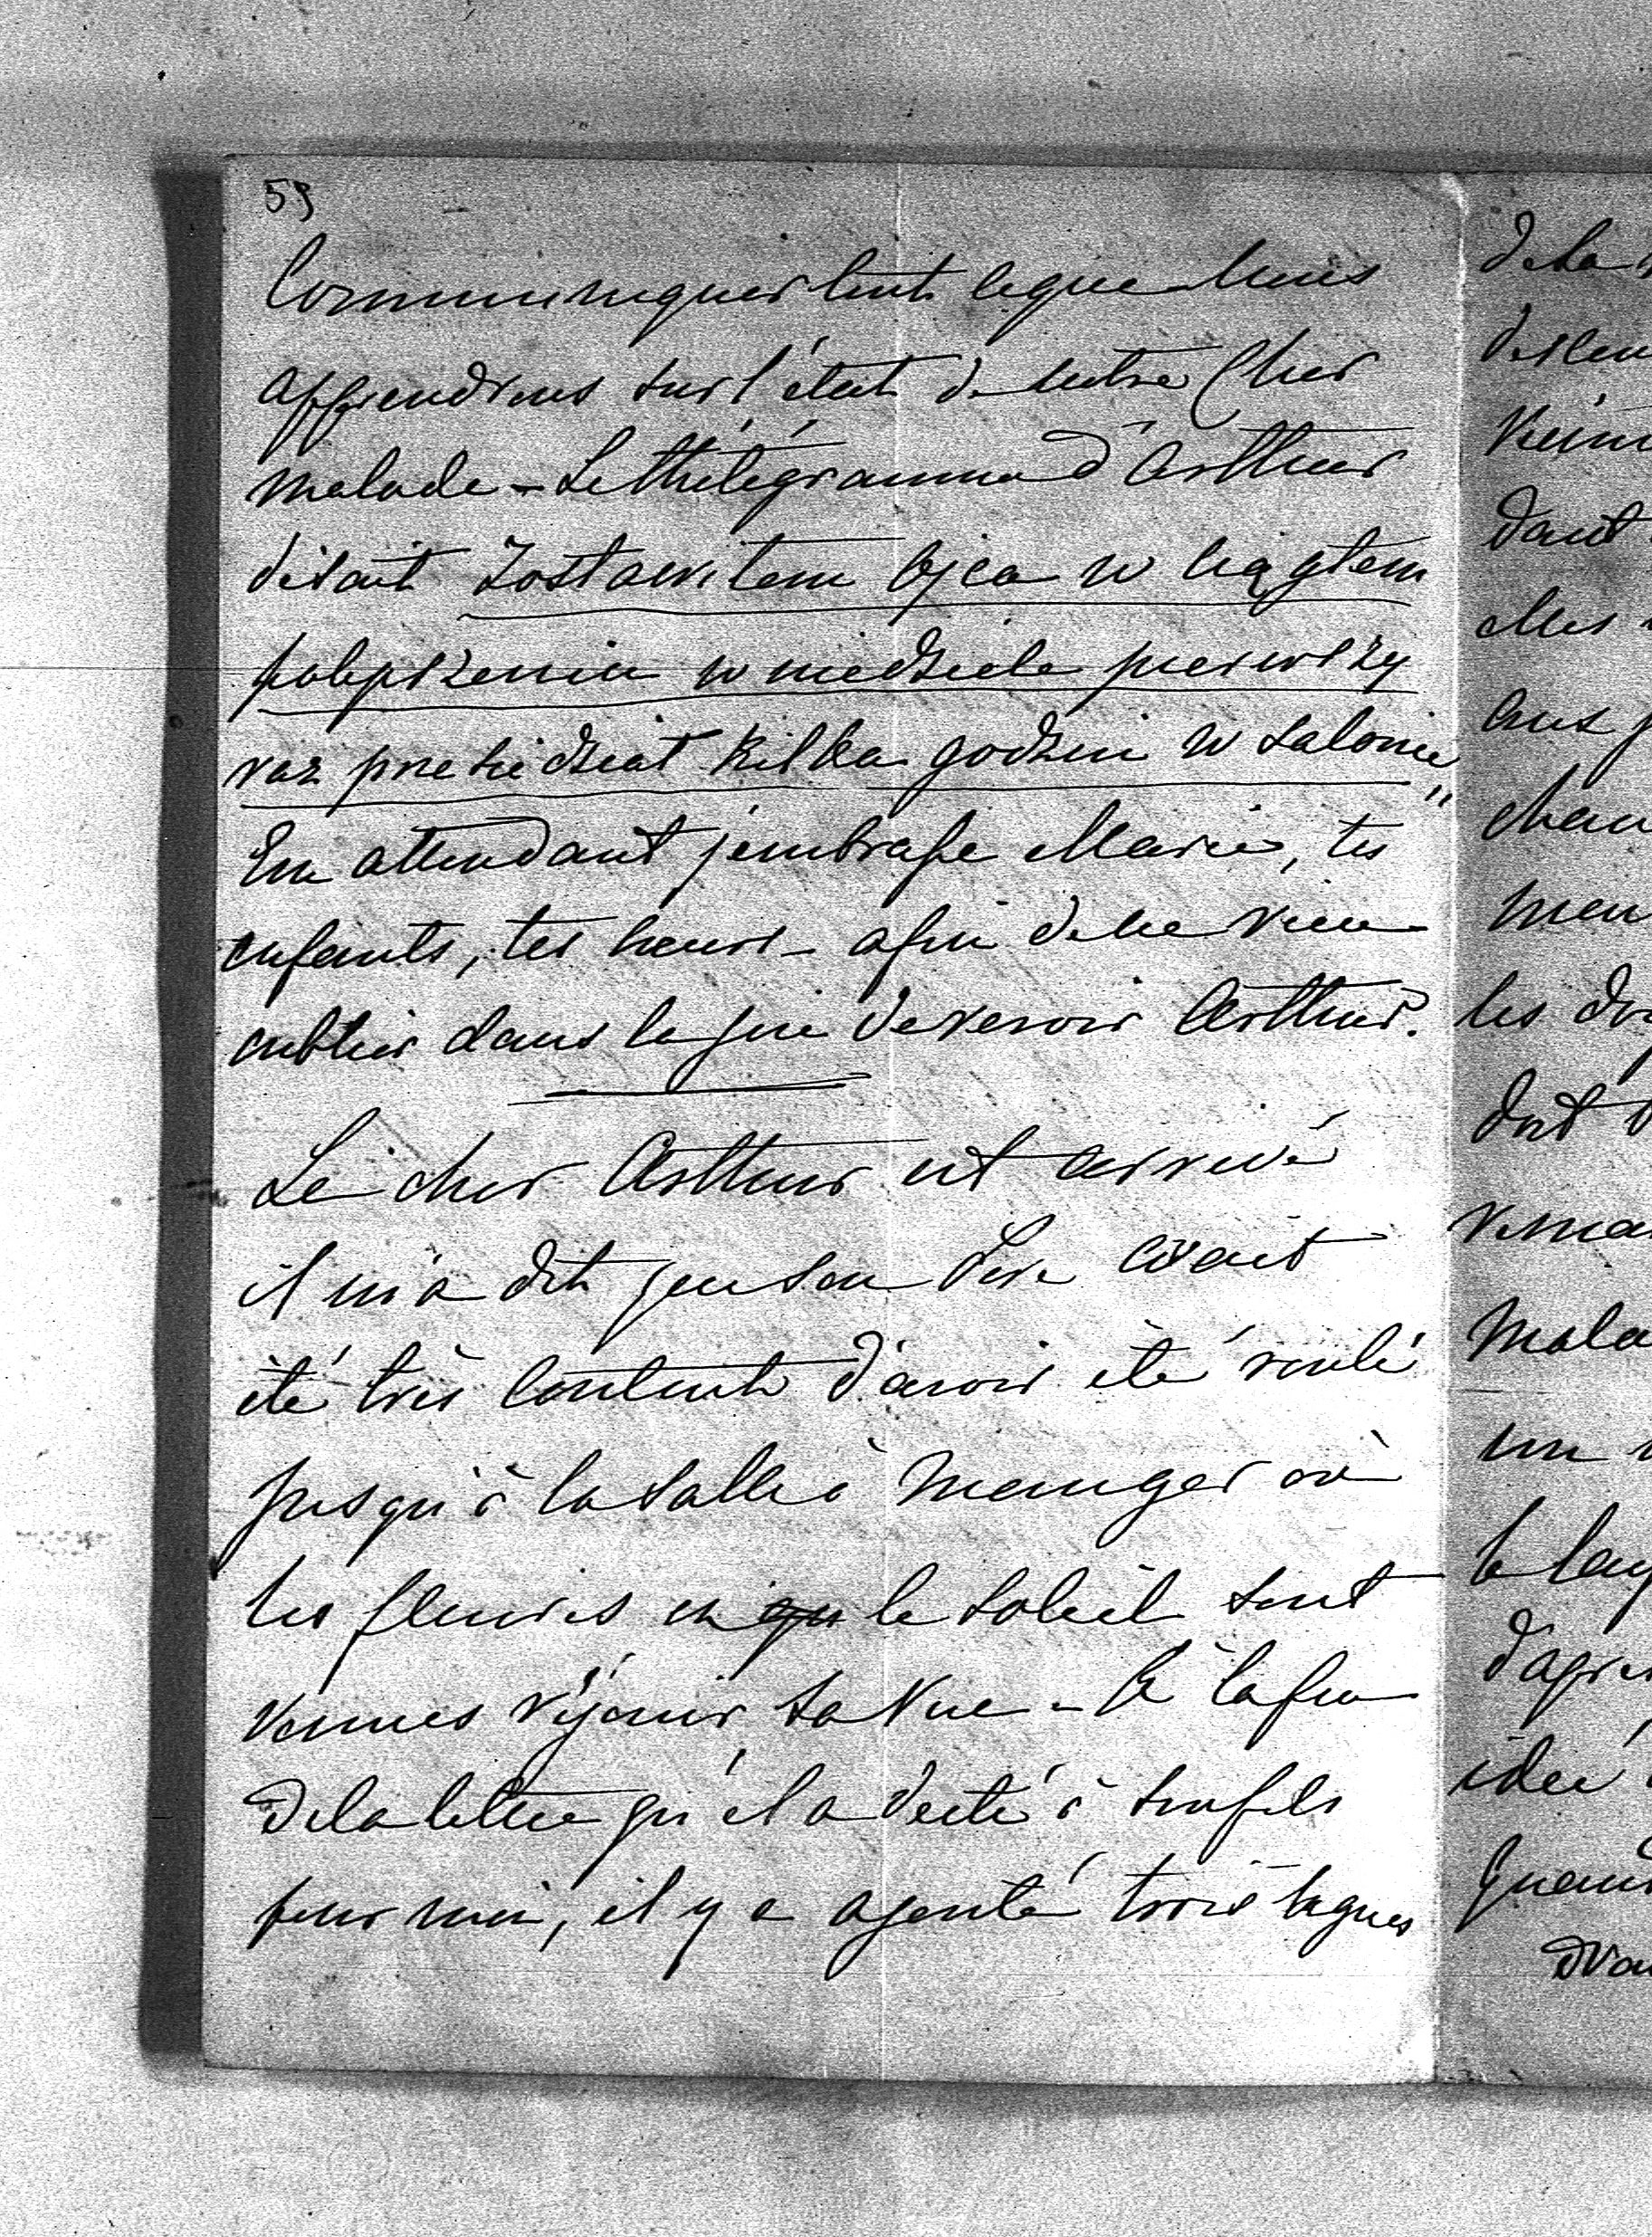 59
Communiquer tout ce que nous
apprendrons sur l'état de notre Cher
malade - Le thélégramme d'Arthur
disait Zostawiłem Ojca w ciągłem
polepszeniu w niedziele pierwszy
raz przesiedział kilka godzin w salonie"
En attendant j'embrasse Marie, tes
enfants, tes soeurs - afin de ne rien
oublier dans la joie de revoir Arthur.
Le cher Arthur est arrivé
il m'a dit que son Père avait
été très content d'avoir été roulé
jusqu'à la salle à manger où
les fleurs et le soleil sont
venues réjouir sa vue - A la fin
de la lettre qu'il a dicté à son fils
pour moi, il y a ajouté trois lignes
de la
dant
elles
les
dont
mala
un
idée
quand